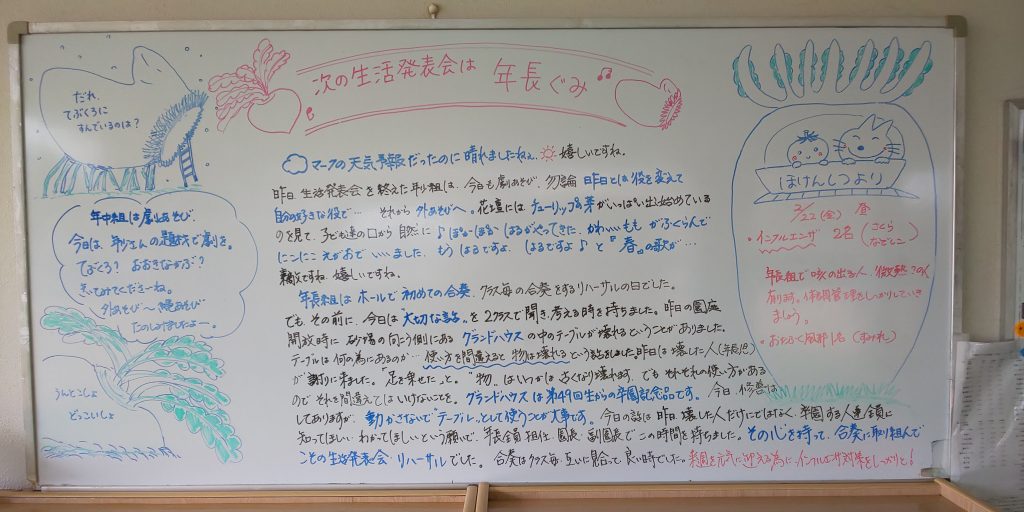 だれ、
てぶくろに
すんでいるのは?
年中組は劇あそび
今日は、年少さんの題材で劇を。
てぶくろ? おおきなかぶ?
きいてみてくださーね。
外あそび〜 縄あそび
うんとこしょ
どっこいしょ
次の生活発表会は 年長ぐみ
マークの天気予報だったのに晴れましたねぇ。嬉しいですね。
昨日、生活発表会を終えた年少組は、今日も劇あそび、勿論 昨日とは役を変えて
自分の好きな役で… それから 外あそびへ。花壇には、チューリップの芽がいっぱい出し始めている
のを見て、子ども達の口から 自然に ♪ぽかぽか はるがやってきた かわいい もも がふくらんで
にこにこ えがおで いいました もう はるですよ はるですよ♪ と『春』の歌が…
素敵ですね 嬉しいですね。
年長組は ホールで 初めての合奏、クラス毎の合奏をするリハーサルの日でした。
でも、その前に、今日は"大切な話"を 2クラスで聞き、考える時を持ちました。昨日の園庭
開放時に、砂場の向こう側にある グランドハウス の中のテーブルが壊れるということがありました。
テーブルは何の為にあるのか… 使い方を間違えると 物は壊れる という話をしました。昨日は壊した人(年長児)
が謝りに来ました。「足を乗せたこと。」"物"はいつかは 古くなり壊れます。でも それぞれの使い方がある
ので それを間違えてはいけないことを。グランドハウスは 第49回生からの卒園記念品です。今日、修善は
してありますが、動かさないで"テーブル"として使うことが大事です。今日の話は 昨日 壊した人だけにではなく、卒園する人達全員に
知ってほしい、わかってほしいという願いで、年長全員、担任、園長、副園長で この時間を持ちました。その心を持って、合奏に取り組んで
こその生活発表会 リハーサルでした。合奏はクラス毎 互いに見合って 良い時でした。来週を元気に迎える為に インフルエンザ対策をしっかりと!
ほけんしつより
2/22(金) 昼
・インフルエンザ 2名(さくら なでしこ)
年長組で咳の出る人、微熱
体調管理をしっかりしていき
ましょう。
・おたふく風邪 1名 (すみれ)